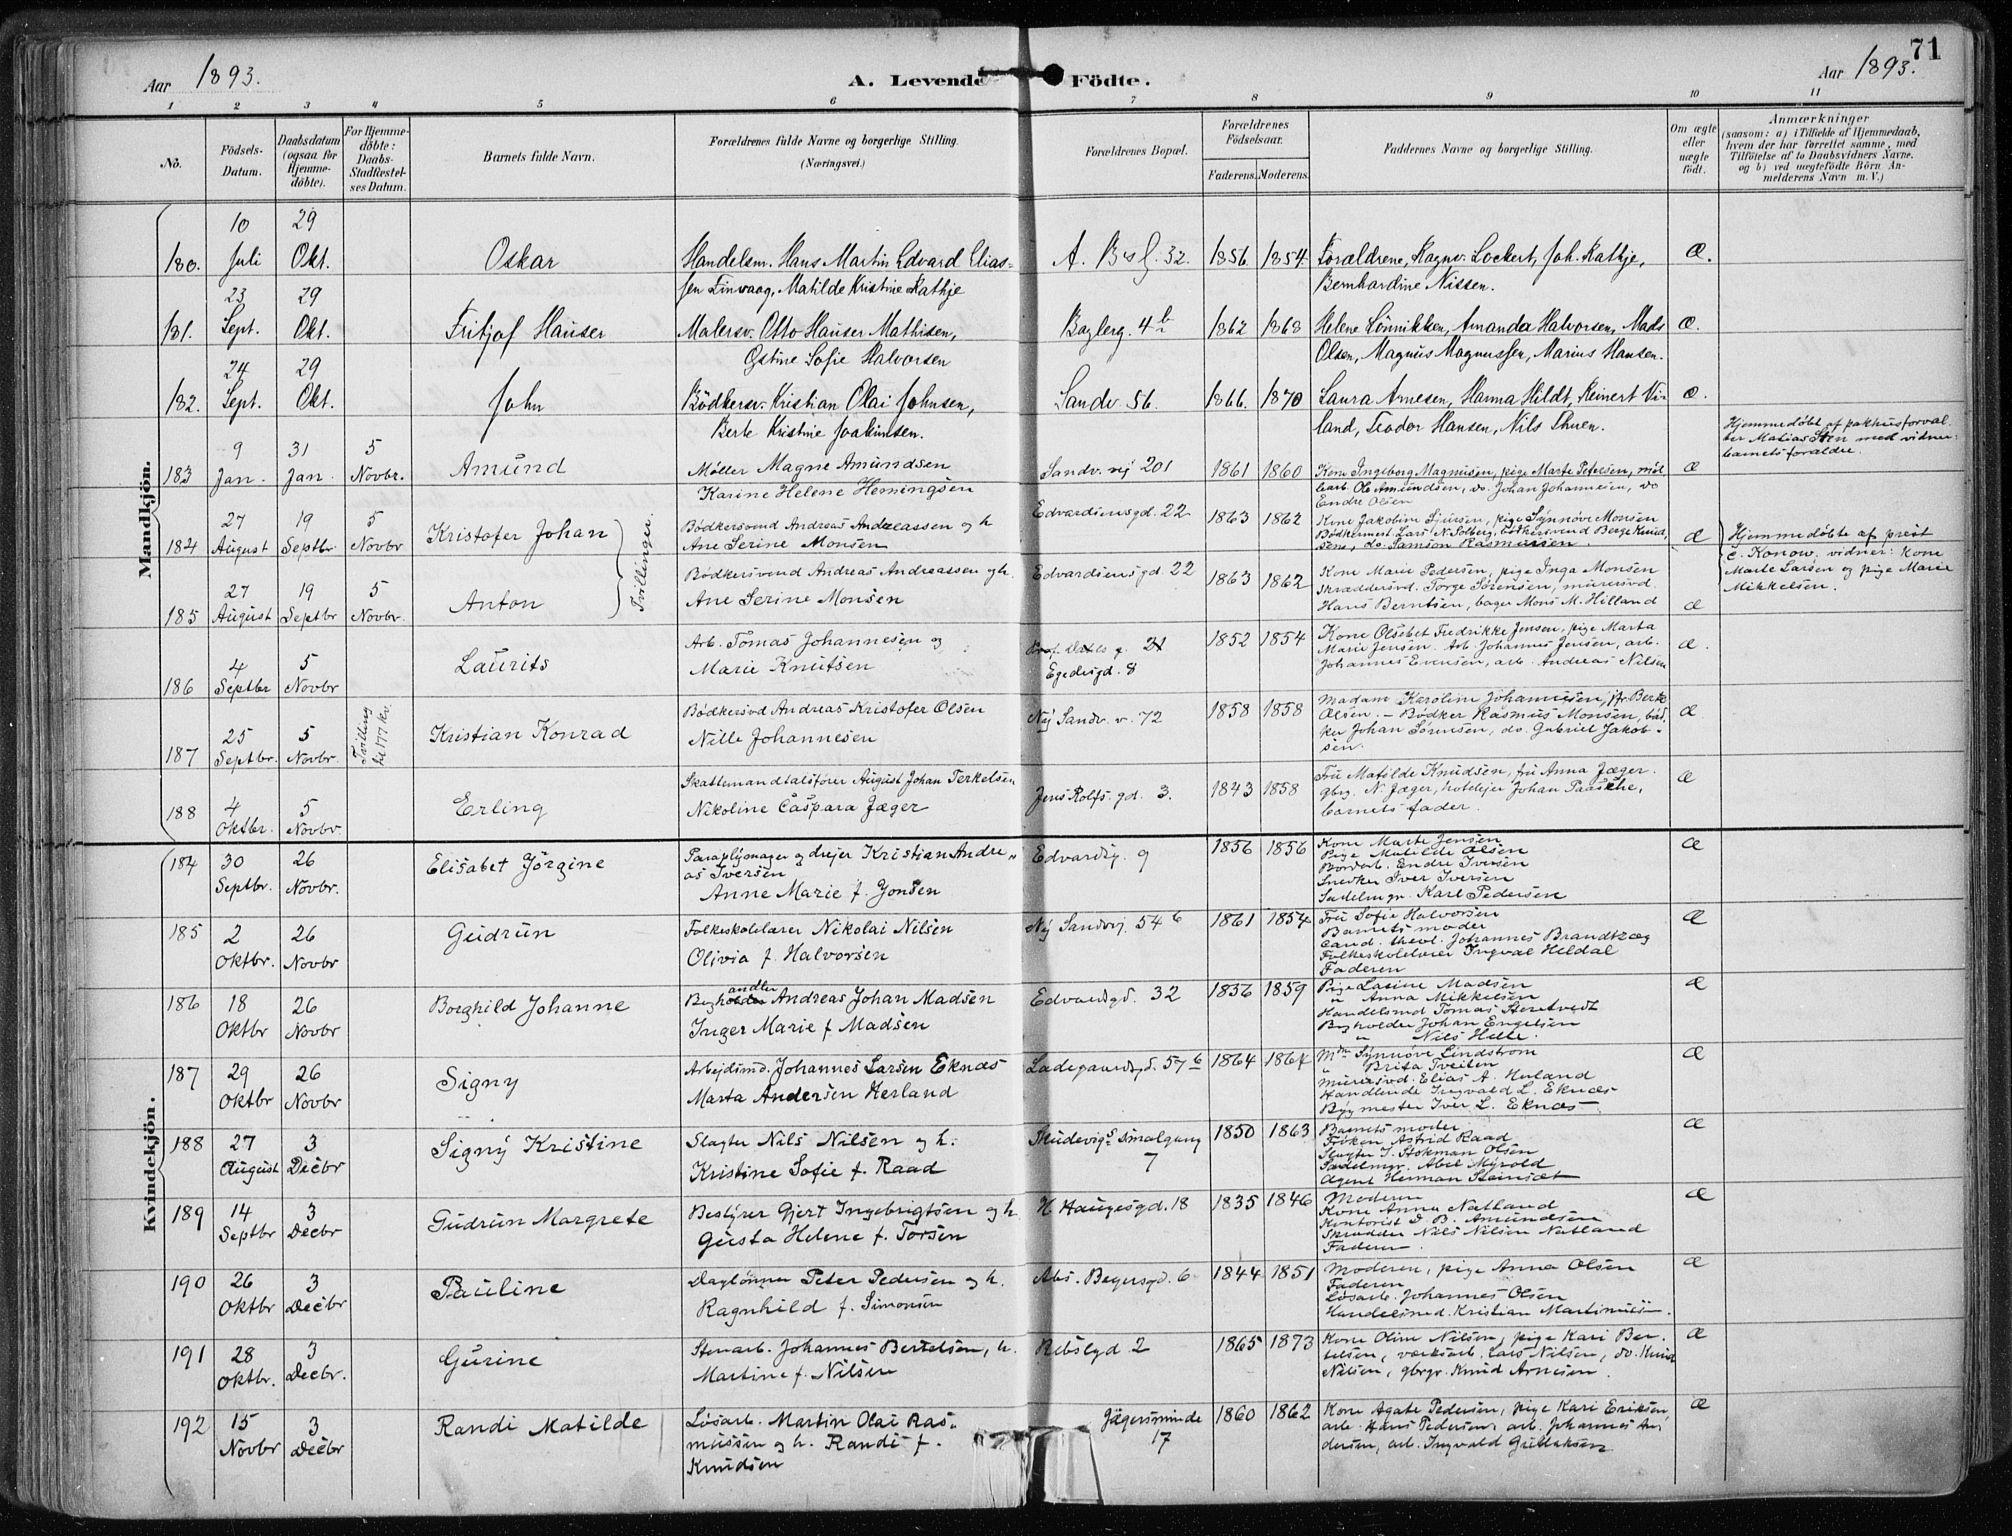 71
Aar 1893.
A. Levende Födte.
Aar 1893.
1 2 3 4 5 6 7 8 9 10 11
No.
Födsels-
Datum.
Daabsdatum
(ogsaa for
Hjemme-
döbte).
For Hjemme-
döbte:
Daabs-
Stadfæstel-
ses Datum.
Barnets fulde Navn.
Forældrenes fulde Navne og borgerlige Stilling.
(Næringsvei.)
Forældrenes Bopæl.
Forældrenes
Födselsaar.
Faderens. Moderens.
Faddernes Navne og borgerlige Stilling.
Om ægte
eller
uægte
födt.
Anmærkninger
(saasom: a) i Tilfælde af Hjemmedaab,
hvem der har forrettet samme, med
Tilföielse af to Daabsvidners Navne.
og b) ved uægtefödte Börn An-
melderens Navn m. V.)
Mandkjön.
10 29
180. Juli Okt. Oskar Handelsm. Hans Martin Edvard Elias- 1856 1854 Forældrene, Ragnv. Lockert, Joh. Kathje, Æ.
sen Finvaag, Matilde Kristine Kathje Bernhardine Nissen.
23 29
181. Sept. Okt. Fritjof Hauser Malersv. Otto Hauser Mathisen, 4b 1862 1868 Helene Lönnikken, Amanda Halvorsen, Mads Æ.
Ostine Sofie Halvorsen Olsen, Magnus Magnussen, Marius Hansen.
24 29
182. Sept. Okt. John Bödkersv. Kristian Olai Johnsen, Sandv. 56. 1866. 1870 Laura Arnesen, Hanna Hildt, Reinert Vi- Æ.
Berte Kristine Joakimsen. land, Teodor Hansen, Nils Thuen.
9 31 5 Hjemmedöbt af pakhusforval-
ter Matias Sten med vidner:
barnets forældre.
183 Jan. Jan. Novbr. Amund Möller Magne Amundsen Sandv. vej 201 1861 1860 Kone Ingeborg Magnusen, pige Marte Petersen, möl- Æ
Karine Helene Hemingsen learb. Ole Amundsen, do. Johan Johannesen, do
Endre Olsen
27 19 5
184 August Septbr Novbr Kristofer Johan Bödkersvend Andreas Andreassen og h. Edvardsensgd. 22 1863 1862 Kone Jakobine Sjursen, pige Synnöve Monsen Æ
Ane Serine Monsen Bödkermest. Lars N. Solberg, bödkersvend Berge Knud-
sens, do. Samson Rasmussen.
Tvillinger.
Hjemmedöbte af prest
C. Konow. vidner: Kone
Marte Larsen og pige Marie
Mikkelsen.
27 19 5
185 August Septbr Novbr. Anton Bödkersvend Andreas Andreassen og h. Edvardsensgd. 22 1863 1862 Kone Marie Pedersen, pige Inga Monsen Æ
Ane Serine Monsen skræddersvd. Torge Sörensen, murersvd.
Hans Berntsen, bager Mons M. Hilland
4 5
186 Septbr Novbr Laurits Arb. Tomas Johannesen og 1852 1854 Kone Olsebet Fredrikke Jensen, pige Marta Æ.
Marie Knutsen Egedesgd. 8 Marie Jensen. Arb. Johannes Jensen, arb.
Johannes Evensen, arb. Andreas Nilsen
25 5
187 Septbr. Novbr. Tvilling til 177 kv. Kristian Konrad Bödkersvd Andreas Kristofer Olsen Ny Sandv. v. 72 1858 1858 Madam Karoline Johannesen, Berte Æ
Nille Johannesen Olsen. - Bödker Rasmus Monsen, böd-
ker Johan Sörensen, do. Gabriel Jakob-
sen.
4 5
188 Oktbr. Novbr. Erling Skattemandtalsförer August Johan Terkelsen Jens Rolfs. gd. 3. 1843 1858 Fru Matilde Knudsen, fru Anna Jæger. Æ
Nikoline Caspara Jæger gbrg. N. Jæger, hotelejer Johan Paasche,
barnets fader.
Kvindekjön.
184 30 Septbr. 26 Novbr. Elisabet Jörgine Paraplymager og drejer Kristian Andre- Edvardsg. 9 1856 1856 Kone Marte Jensen Æ
as Iversen Pige Matilde Olsen
Anne Marie f. Jonsen Bordarb. Endre Iversen
Snedker Iver Iversen
Sadelmgr. Karl Pedersen
185 2 Oktbr. 26 Novbr Gudrun Folkeskolelærer Nikolai Nilsen Ny Sandvg. 54 b 1861 1854 Fru Sofie Halvorsen Æ
Olivia f. Halvorsen Barnets moder
Cand. theol. Johannes Brandtzæg
Folkeskolelærer Ingval Heldal
Faderen
186 18 Oktbr 26 Novbr Borghild Johanne andler Andreas Johan Madsen Edvardsgd. 32 1856 1859 Pige Lasine Madsen Æ
Inger Marie f. Madsen " Anna Mikkelsen
Handelsmd Tomas Stentvedt
Johan Engelsen
" Nils Helle.
187 29 Oktbr 26 Novbr Signy Arbejdsmd. Johannes Larsen Eknæs Ladegaardsgd. 57 b 1864 1864 Mdm Synnöve Lindström Æ
Marta Andersen Herland " Brita Tveiten
Murersvd. Elias A. Herland
Handlende Ingvald L. Eknæs
Bygmester Iver L. Eknæs.
188 27 August 3 Decbr Signy Kristine Slagter Nils Nilsen og h. Skudevigs Smalgang 1850 1863 Barnets moder Æ
Kristine Sofie f. Raad 7 Fröken Astrid Raad
Slagter J. Stokman Olsen
Sadelmgr. Abel Myrold
Agent Herman Steinsæt
189 14 Septbr 3 Decbr Gudrun Margrete Bestyrer Gjert Ingebrigtsen og h. H. Haugesgd. 18 1835 1846 Moderen Æ
Gusta Helene f. Torsen Kone Anna Natland
Kontorist D. B. Amundsen
Skrædder Nils Nilsen Natland
Faderen.
190 26 Oktbr 3 Decbr Pauline Daglönner Peter Pedersen og h. Abs. Beyersgd. 6 1844 1851 Moderen, pige Anna Olsen Æ
Ragnhild f. Simonsen Faderen
Lösarb. Johannes Olsen
Handelsmd. Kristian Martinusen.
191 28 Oktbr. 3 Decbr. Gurine Stenarb. Johannes Bertelsen, h. Rebslgd 2 1865 1873 Kone Oline Nilsen, pige Kari Ber- Æ
Martine f. Nilsen telsen, værksarb. Lars Nilsen, do. Knud
Nilsen, gbrgr. Knud Arnesen.
192 15 Novbr 3 Decbr Randi Matilde Lösarb. Martin Olai Ras- Jægersminde 1860 1862 Kone Agate Pedersen, pige Kari Eriksen Æ
mussen og h. Randi f. 17 arb. Hans Pedersen, arb. Johannes An-
Knudsen dersen, arb. Ingvald Gullaksen